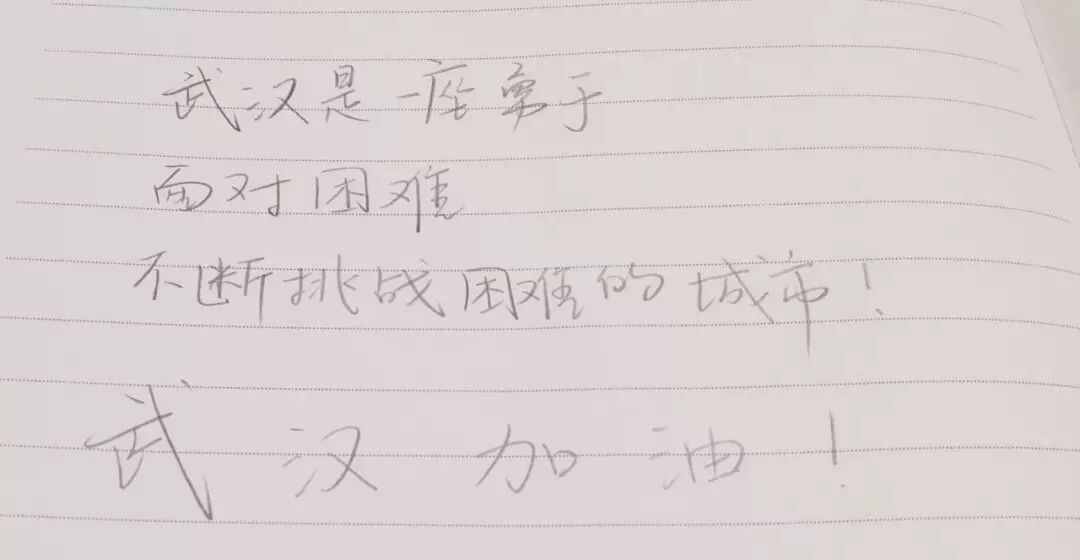 武汉是一座勇于
面对困难
不断挑战困难的城市!
武汉加油!